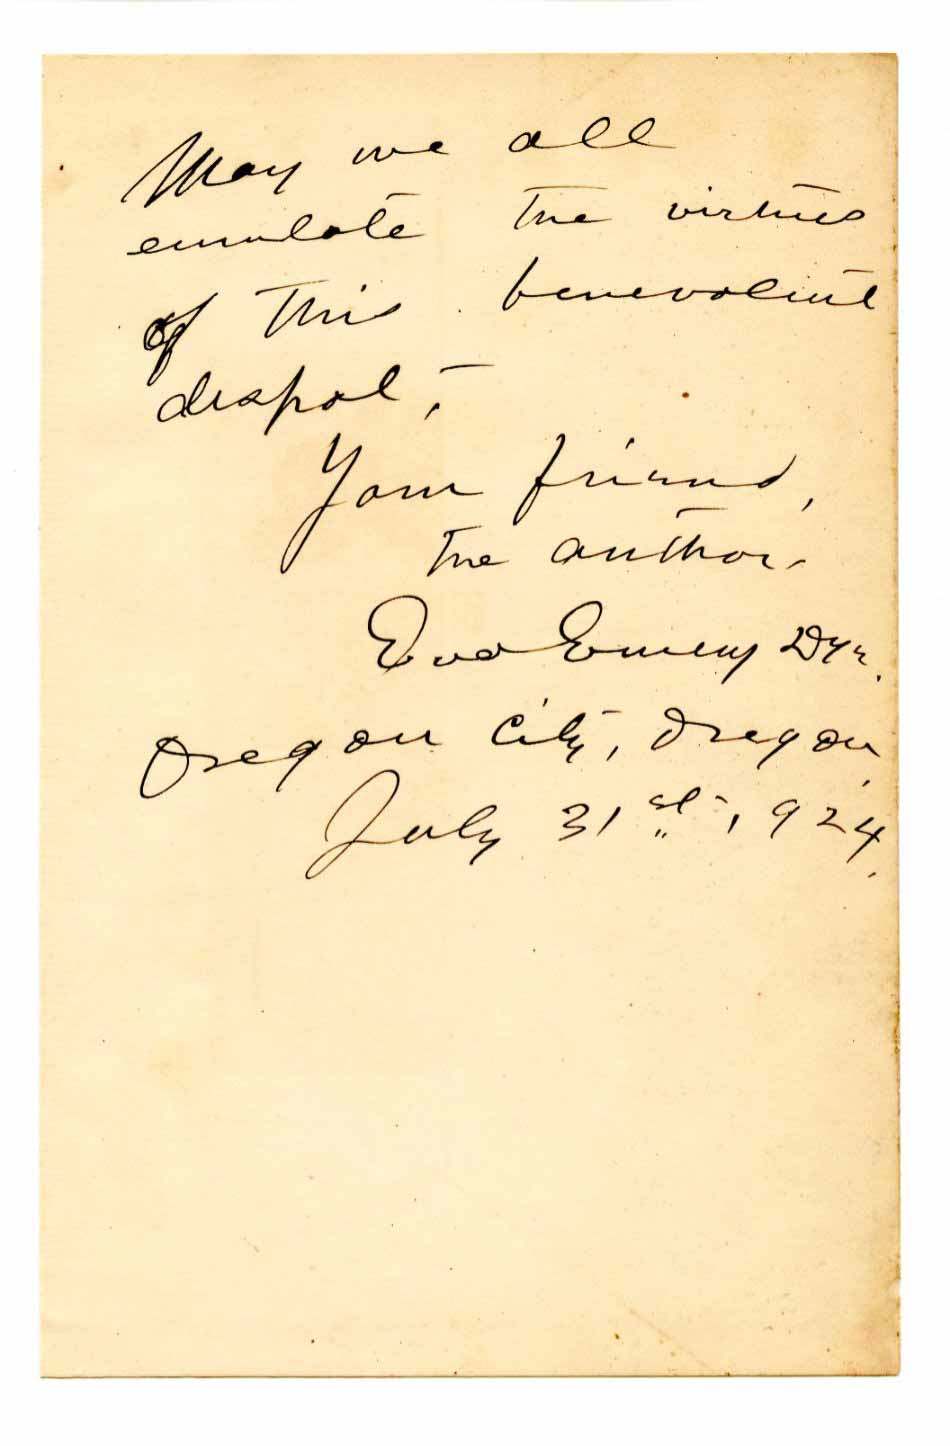 May we all
emulate the virtues
of this benevolent
despot,
Your friend,
the author.
Eva Emery Dye.
Oregon City, Oregon,
July 31st, 1924.